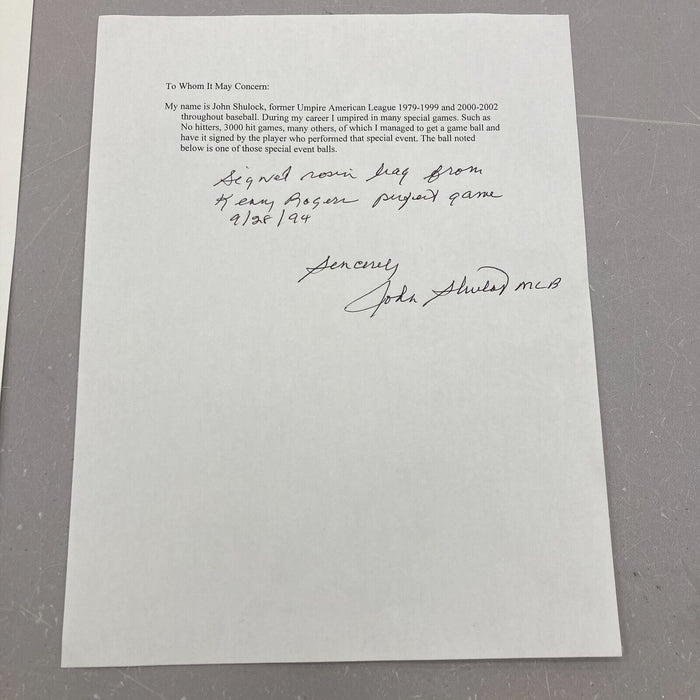 To Whom It May Concern:
My name is John Shulock, former Umpire American League 1979-1999 and 2000-2002
throughout baseball. During my career I umpired in many special games. Such as
No hitters, 3000 hit games, many others, of which I managed to get a game ball and
have it signed by the player who performed that special event. The ball noted
below is one of those special event balls.
Signed rosin bag from
Kenny Rogers perfect game
9/28/94
Sencerely
John Shulock MLB